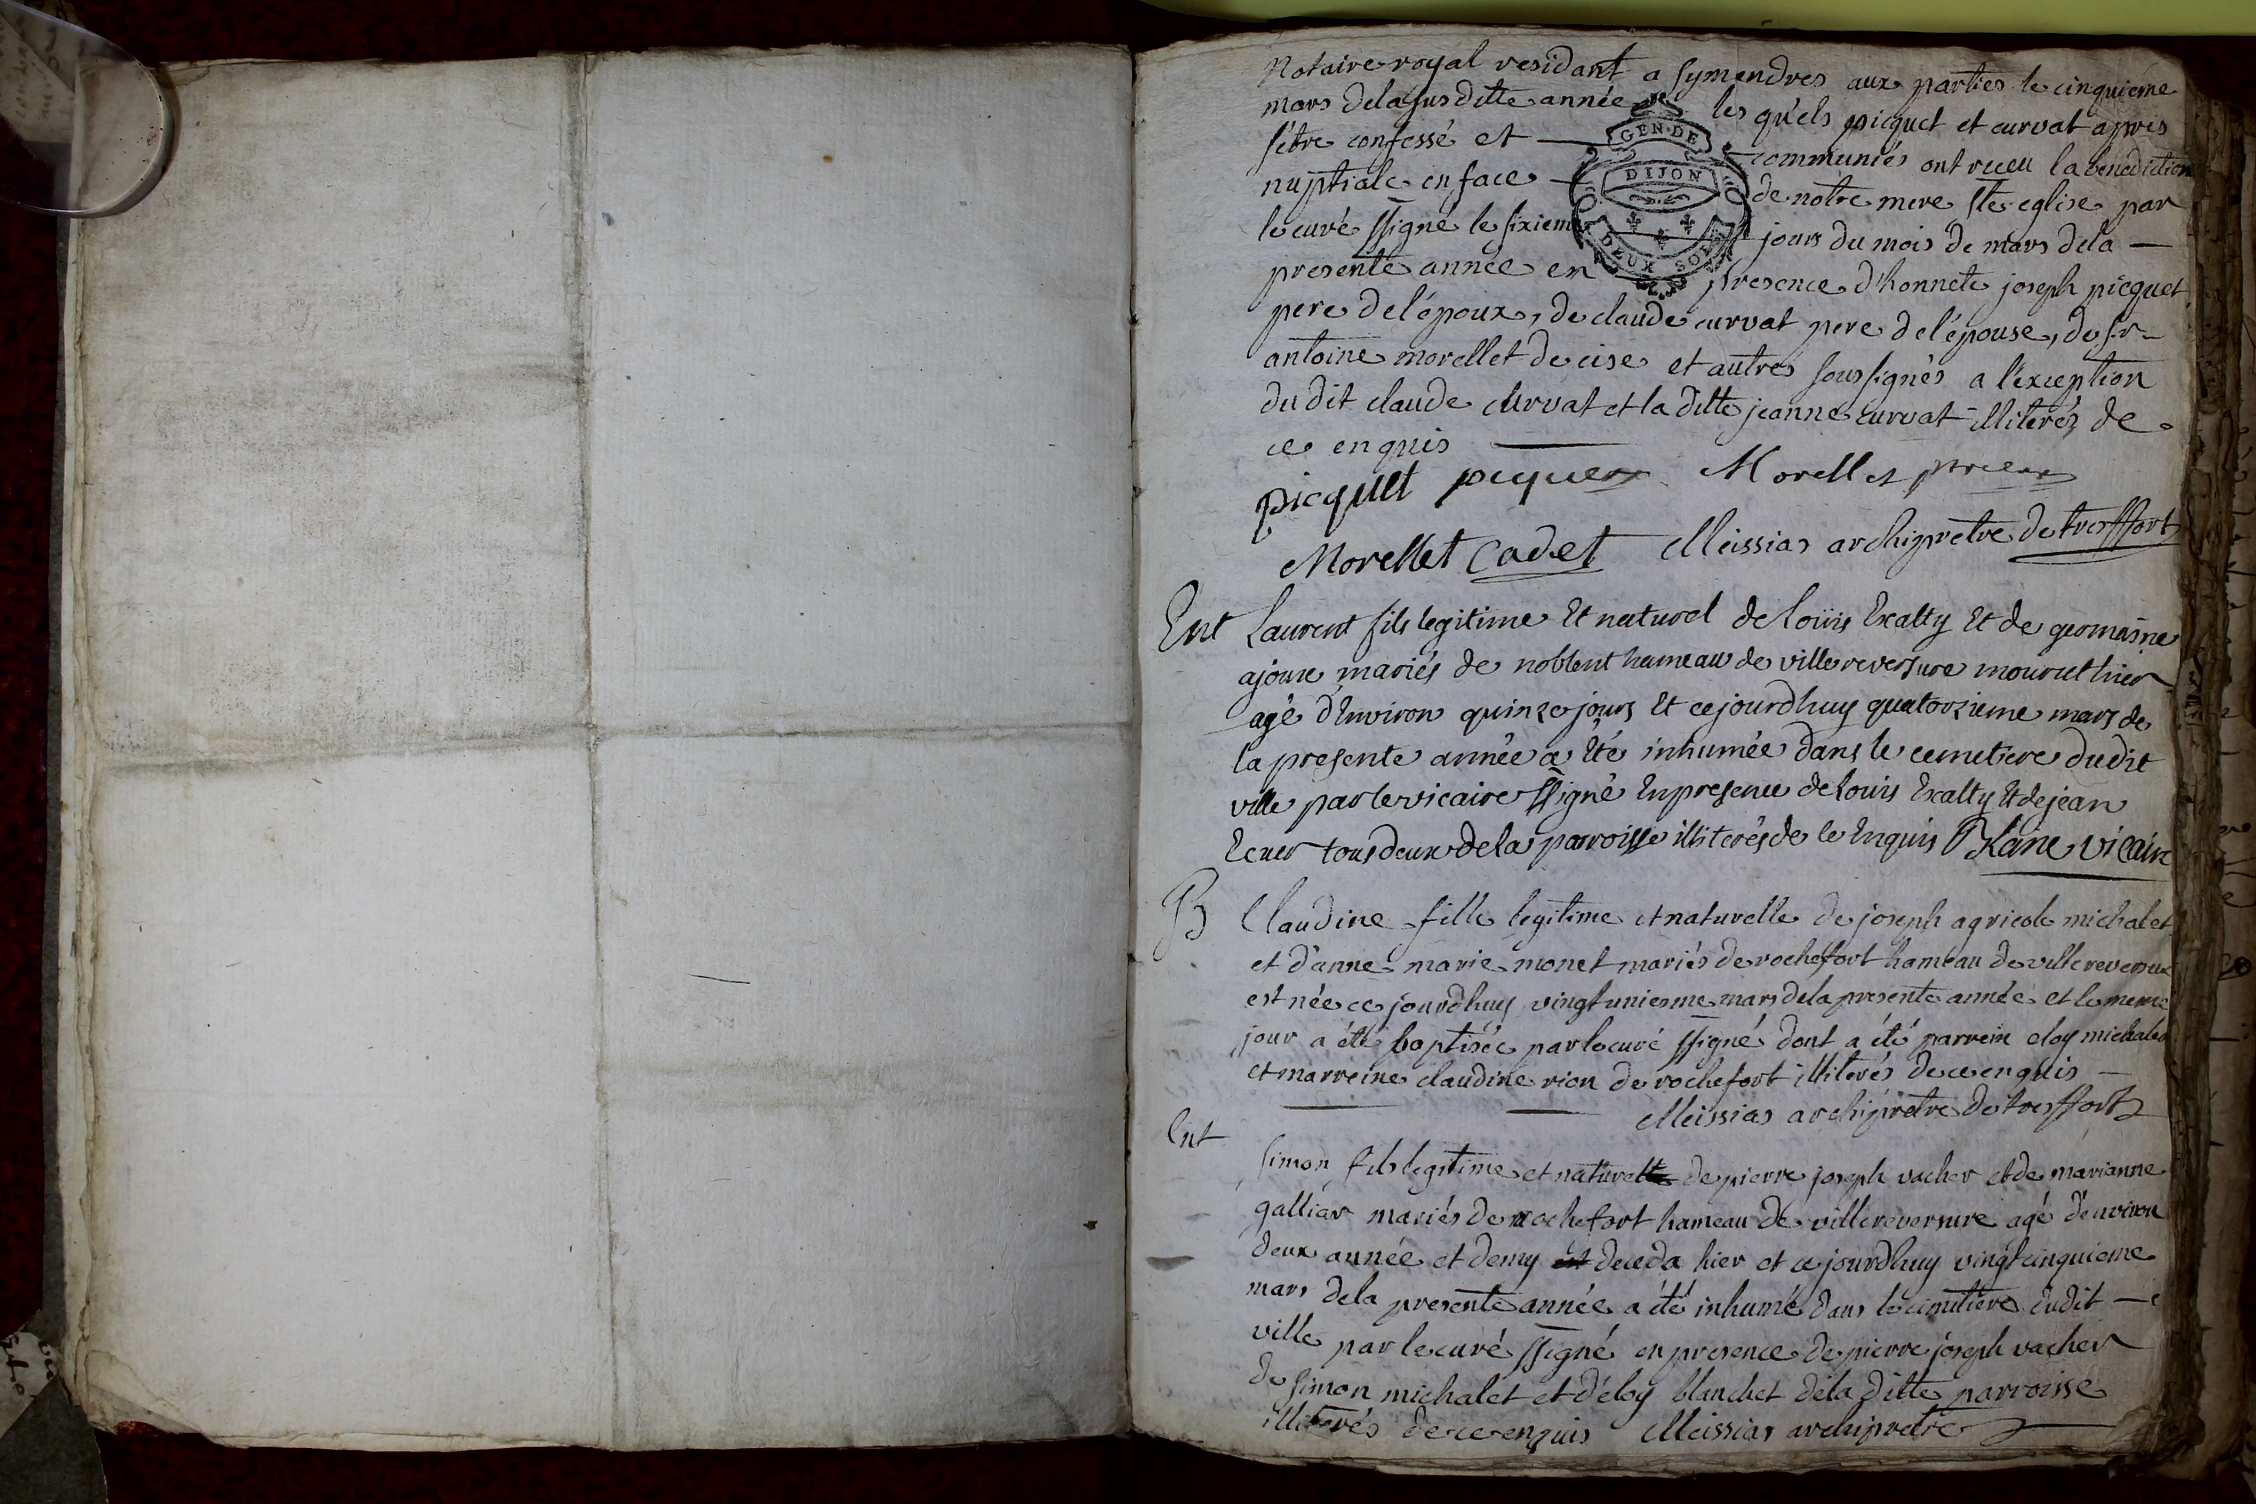 Notaire royal residant a Symendres aux parties le cinquieme
mars dela susditte année les quels picquet et curvat après
s'être confessé et communiés ont receu la benediction
nuptiale en face de notre mere ste eglise par
le curé ssigné le sixieme jours du mois de mars dela
presente année en presence d'honnete joseph picquet
pere de l'époux, de claude curvat pere de l'épouse, de sr
antoine morellet de cise et autres soussignés a l'exception
du dit claude curvat et la ditte jeanne curvat illiterés de
ce enquis
GEN. DE
DIJON
DEUX SOLS
picquet picquet Morellet
Morellet Cadet Meissias archiprêtre de treffort
Ent Laurent fils legitime Et naturel de Loüis Exalty Et de germaine
ajoux mariés de noblent hameau de villereversure mourut hier
agé d'Environ quinze jours Et cejourdhuy quatorzieme mars de
la presente année a Eté inhumée dans le cemetiere dudit
ville par le vicaire ssigné Enpresence de Louis Exalty Et de jean
Ecuer tous deux de la parroisse illiterés de ce Enquis Kaine vicaire
B Claudine fille legitime et naturelle de joseph agricole michalet
et d'anne marie monet mariés de rochefort hameau de villereversure
est née ce jourdhuy vingtuniesme mars dela presente année et le meme
jour a été baptisée par le curé ssigné dont a été parrein eloy michalet
et marreine claudine rion de rochefort illiterés de ce enquis
Meissias archiprêtre de treffort
Ent Simon fils legitime et naturel de pierre joseph vacher et de marianne
galliar mariés de rochefort hameau de villereversure agé d'environ
deux année et demy est deceda hier et ce jourdhuy vingtcinquieme
mars dela presente année a été inhumé dans le cimetiere dudit
ville par le curé ssigné en presence de pierre joseph vacher
de simon michalet et d'éloy blanchet dela ditte parroisse
illiterés de ce enquis Meissias archiprêtre